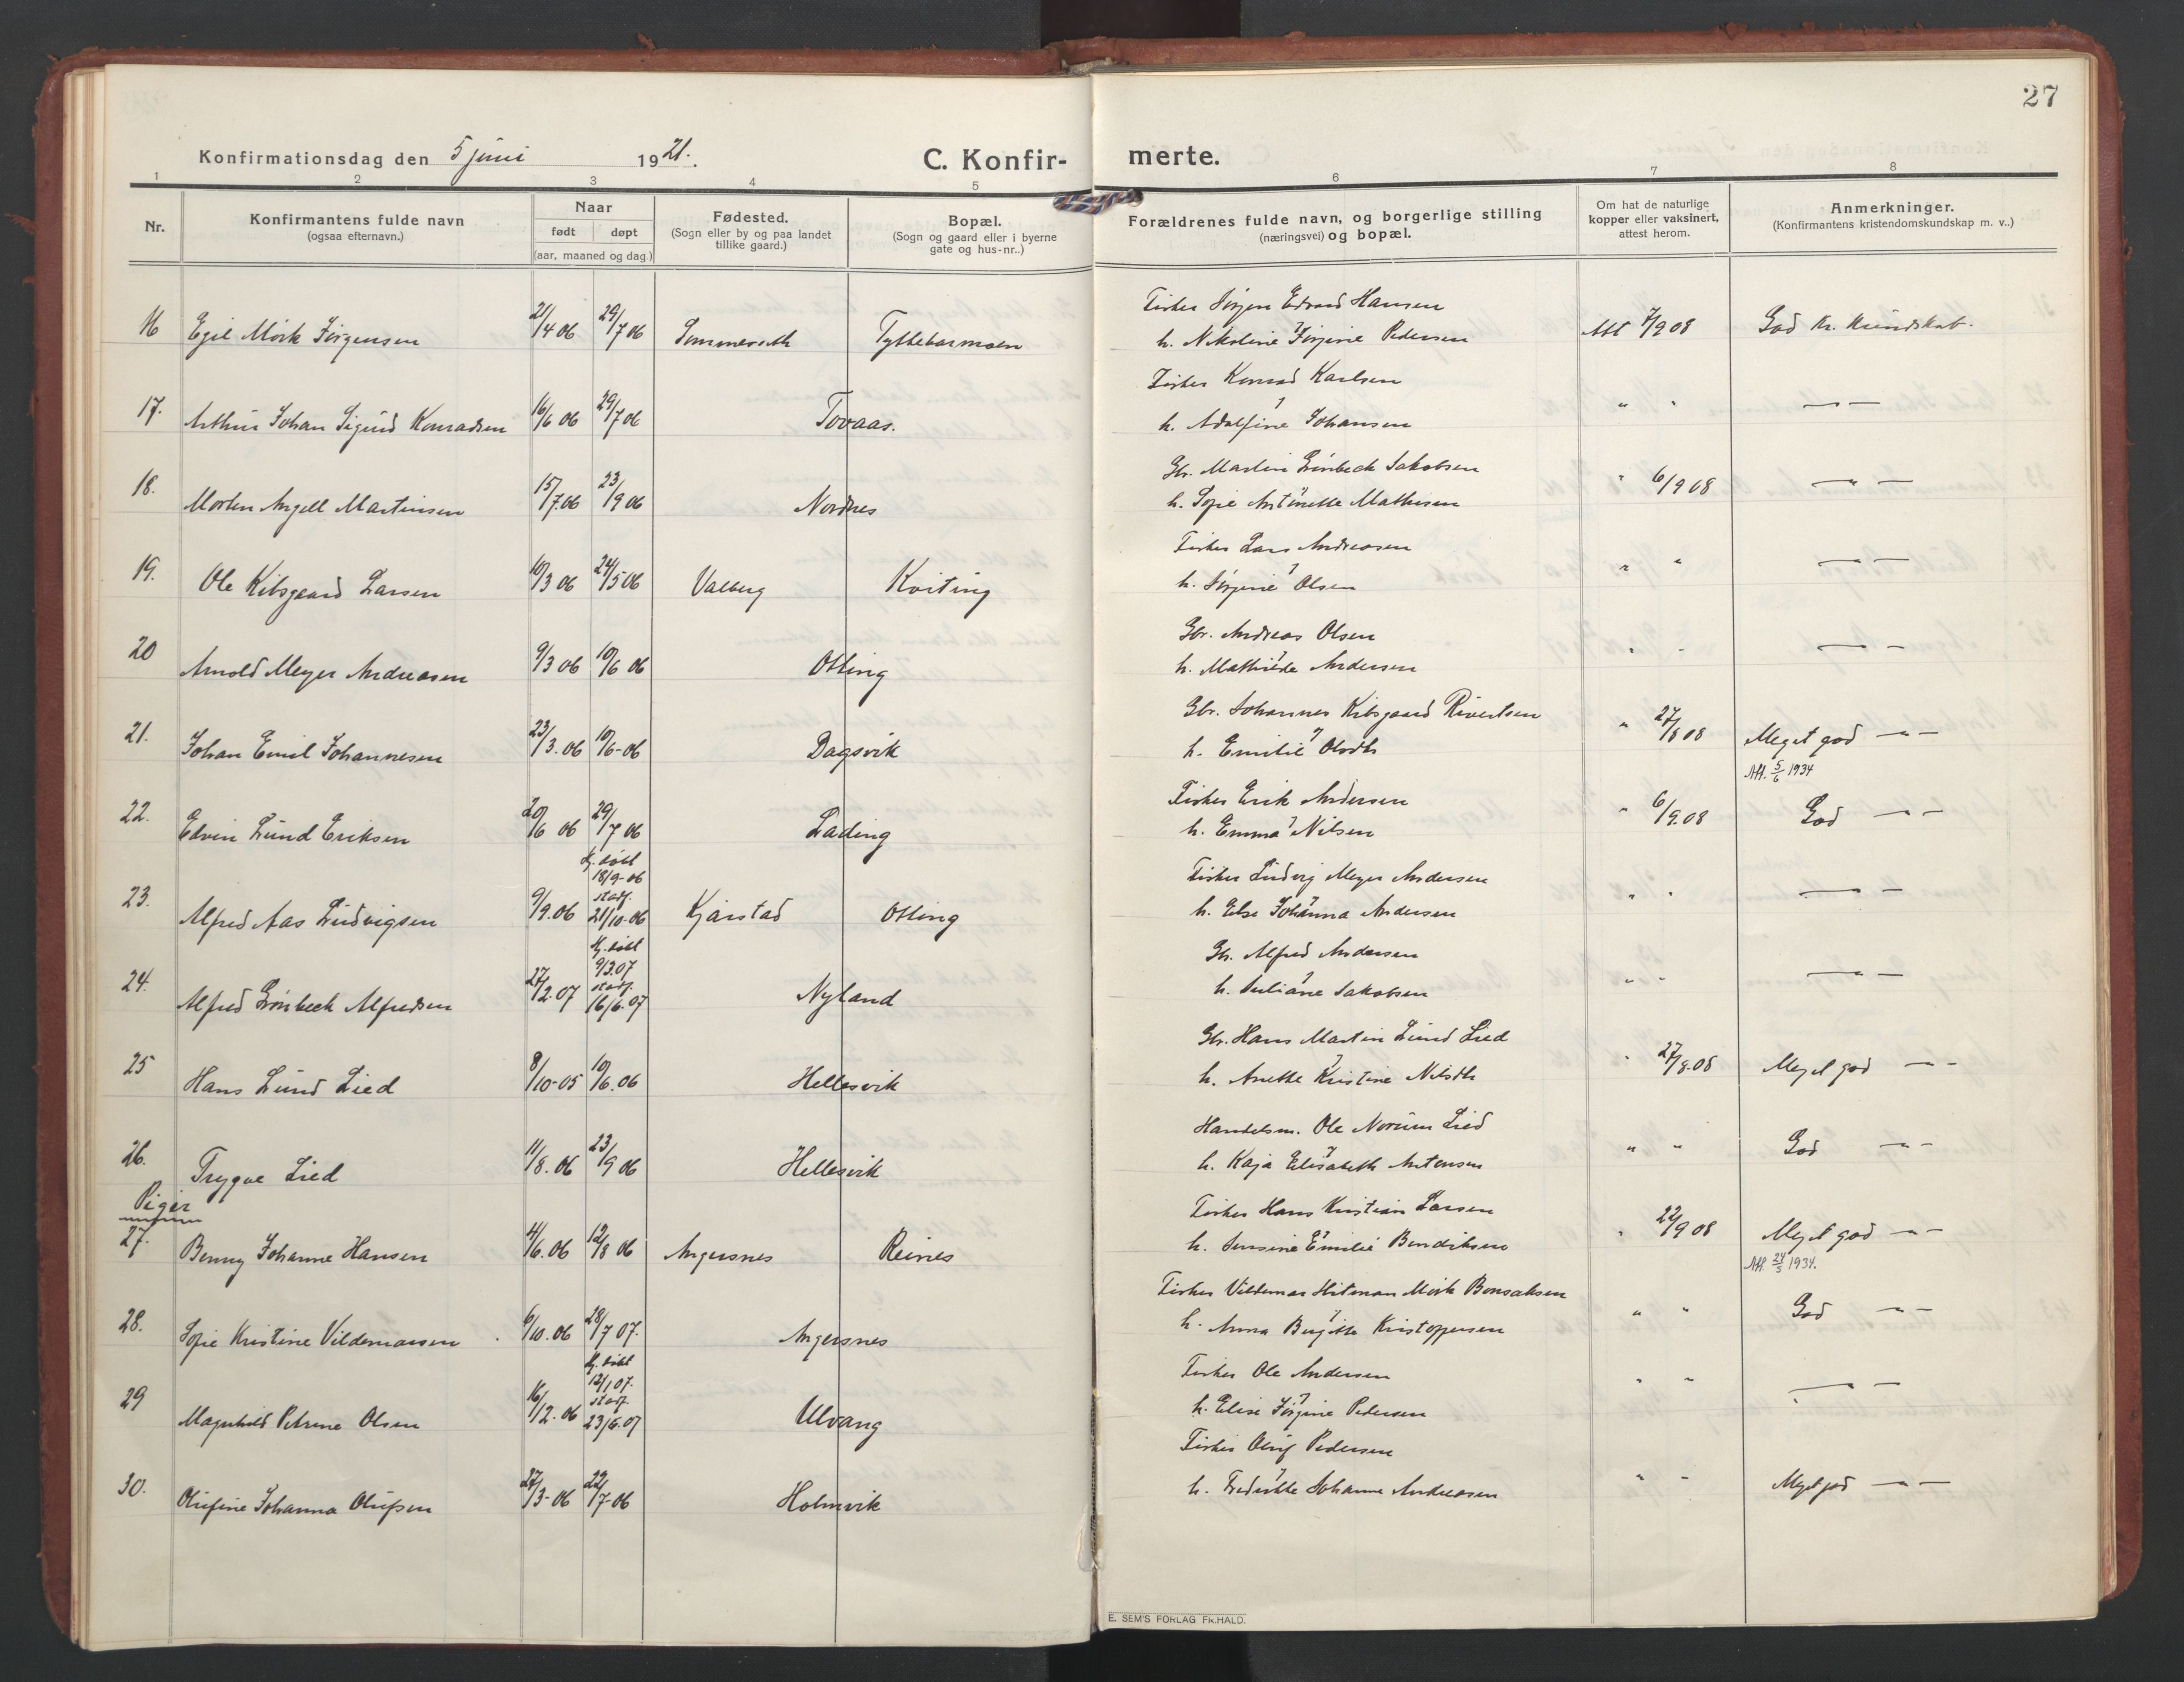 27
Konfirmationsdag den 5 juni 1921.
C. Konfir-
merte.
1 2 3 4 5 6 7 8
Nr.
Konfirmantens fulde navn
(ogsaa efternavn.)
Naar
født døpt
(aar, maaned og dag.)
Fødested.
(Sogn eller by og paa landet
tillike gaard.)
Bopæl.
(Sogn og gaard eller i byerne
gate og hus-nr..)
Forældrenes fulde navn, og borgerlige stilling
(næringsvei) og bopæl.
Om hat de naturlige
kopper eller vaksinert,
attest herom.
Anmerkninger.
(Konfirmantens kristendomskundskap m. v..)
Fisker Jörgen Edvard Hansen
16 Egil Mörk Jörgensen 21/4 06 29/7 06 Sommerseth Tyttebærmoen h. Nikoline Jörgine Pedersen Att 7/9 08 God Kr. Kundskab.
Fisker Konrad Karlsen
17. Arthur Johan Sigurd Konradsen 16/6 06 29/7 06 Tovaas. h. Adolfine Johansen " " — " —
Gbr. Martin Grönbech Jakobsen
18. Morten Angell Martinsen 15/7.06 23/9 06 Nordnes h. Sofie Antonette Mathisen " 6/9 08 — " —
Fisker Lars Andreasen
19. Ole Kibsgaard Larsen 10/3 06 24/5 06 Valberg Kviting h. Jörgine Olsen " " — " —
Gbr. Andreas Olsen
20 Arnold Meyer Andreasen 9/3 06 10/6 06 Otting h. Mathilde Andersen " " — " —
Gbr. Johannes Kibsgaard Rivertsen
21. Johan Emil Johannesen 23/3.06 10/6-06 Dagsvik h. Emilie Olsdtr " 27/8 08 Meget god — " —
Att. 5/6 1934
Fisker Erik Andersen
22. Edvin Lund Eriksen 20/6 06 29/7 06 Lading h. Emma Nilsen " 6/9.08 God — " —
Hj. döbt
18/9-06
stadf.
Fisker Ludvig Meyer Andersen
23. Alfred Aas Ludvigsen 9/9.06 21/10-06 Kjærstad Otting h. Else Johanna Andersen " " — " —
Hj. döbt
9/3.07
stadf.
Gbr. Alfred Andersen
24. Alfred Grönbech Alfredsen 27/2.07 16/6.07 Nyland h. Juliane Jakobsen " " — " —
Gbr. Hans Martin Lund Lied
25 Hans Lund Lied 8/10-05 10/6.06 Hellesvik h. Anette Kristine Nilsdtr " 27/8.08 Meget god — " —
Handelsm. Ole Norum Lied
26. Trygve Lied 11/8.06 23/9 06 Hellesvik h. Kaja Elisabeth Antonsen " " God — " —
Piger
Fisker Hans Kristian Larsen
27. Benny Johanne Hansen 4/6.06 12/8 06 Angersnes Reines h. Jensine Emilie Bendiksen " 22/9 08 Meget god — " —
Att. 24/5 1934.
Fisker Vildemar Hitman Mörk Bonsaksen
28. Sofie Kristine Vildemarsen 6/10.06 28/7 07. Angersnes h. Anna Birgitte Kristoffersen " " God — " —
Hj. döbt
12/1 07.
stadf.
Fisker Ole Andersen
29 Magnhild Petrine Olsen 16/12.06 23/6.07 Ulvang h. Elise Jörgine Pedersen " " — " —
Fisker Oluf Pedersen
30. Olufine Johanna Olufsen 27/3-06 22/7-06 Holmvik h. Fredrikke Johanne Andreasen " " Meget god — " —
E. SEM'S FORLAG FR.HALD.